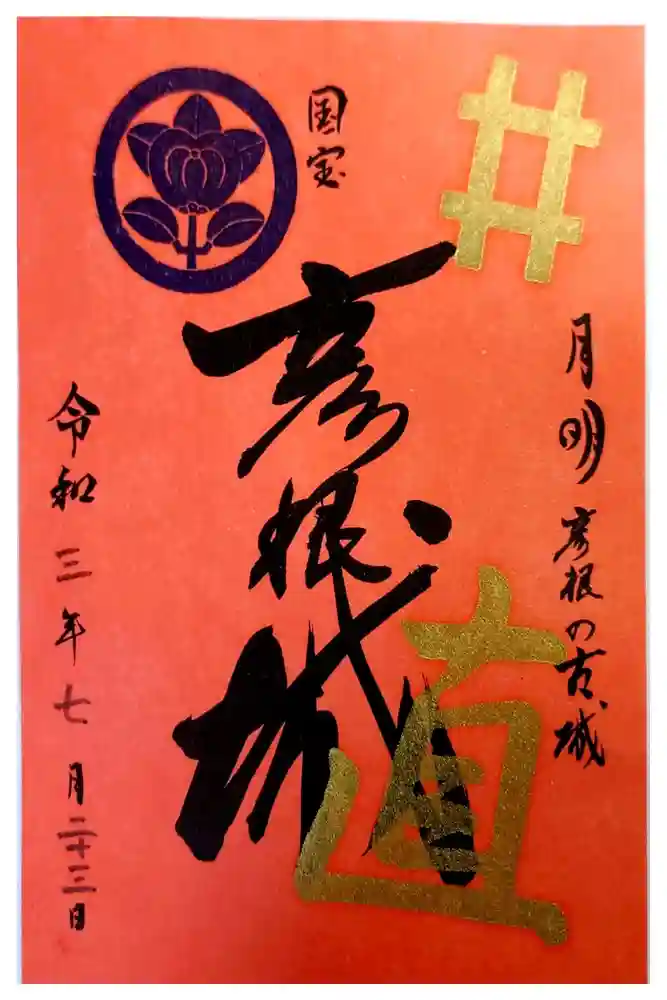 井
月明彦根の古城
国宝
彦根城
直
令和三年七月二十三日